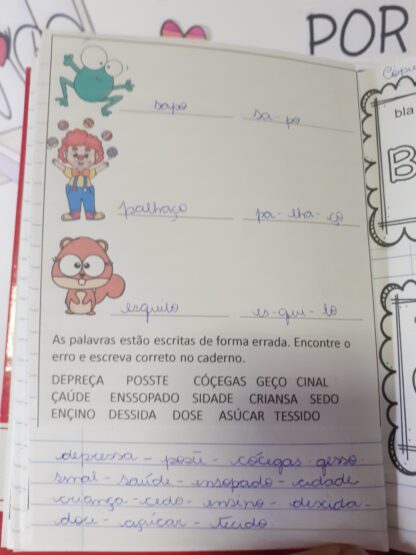 POR
Cópi
sapo sa-po
bla
B
palhaço pa-lha-ço
esquilo es-qui-lo
As palavras estão escritas de forma errada. Encontre o
erro e escreva correto no caderno.
DEPREÇA POSSTE CÓÇEGAS GEÇO CINAL
ÇAÚDE ENSSOPADO SIDADE CRIANSA SEDO
ENÇINO DESSIDA DOSE ASÚCAR TESSIDO
depressa - poste - cócegas - gesso
sinal - saúde - ensopado - cidade
criança - cedo - ensino - descida
doce - açúcar - tecido.